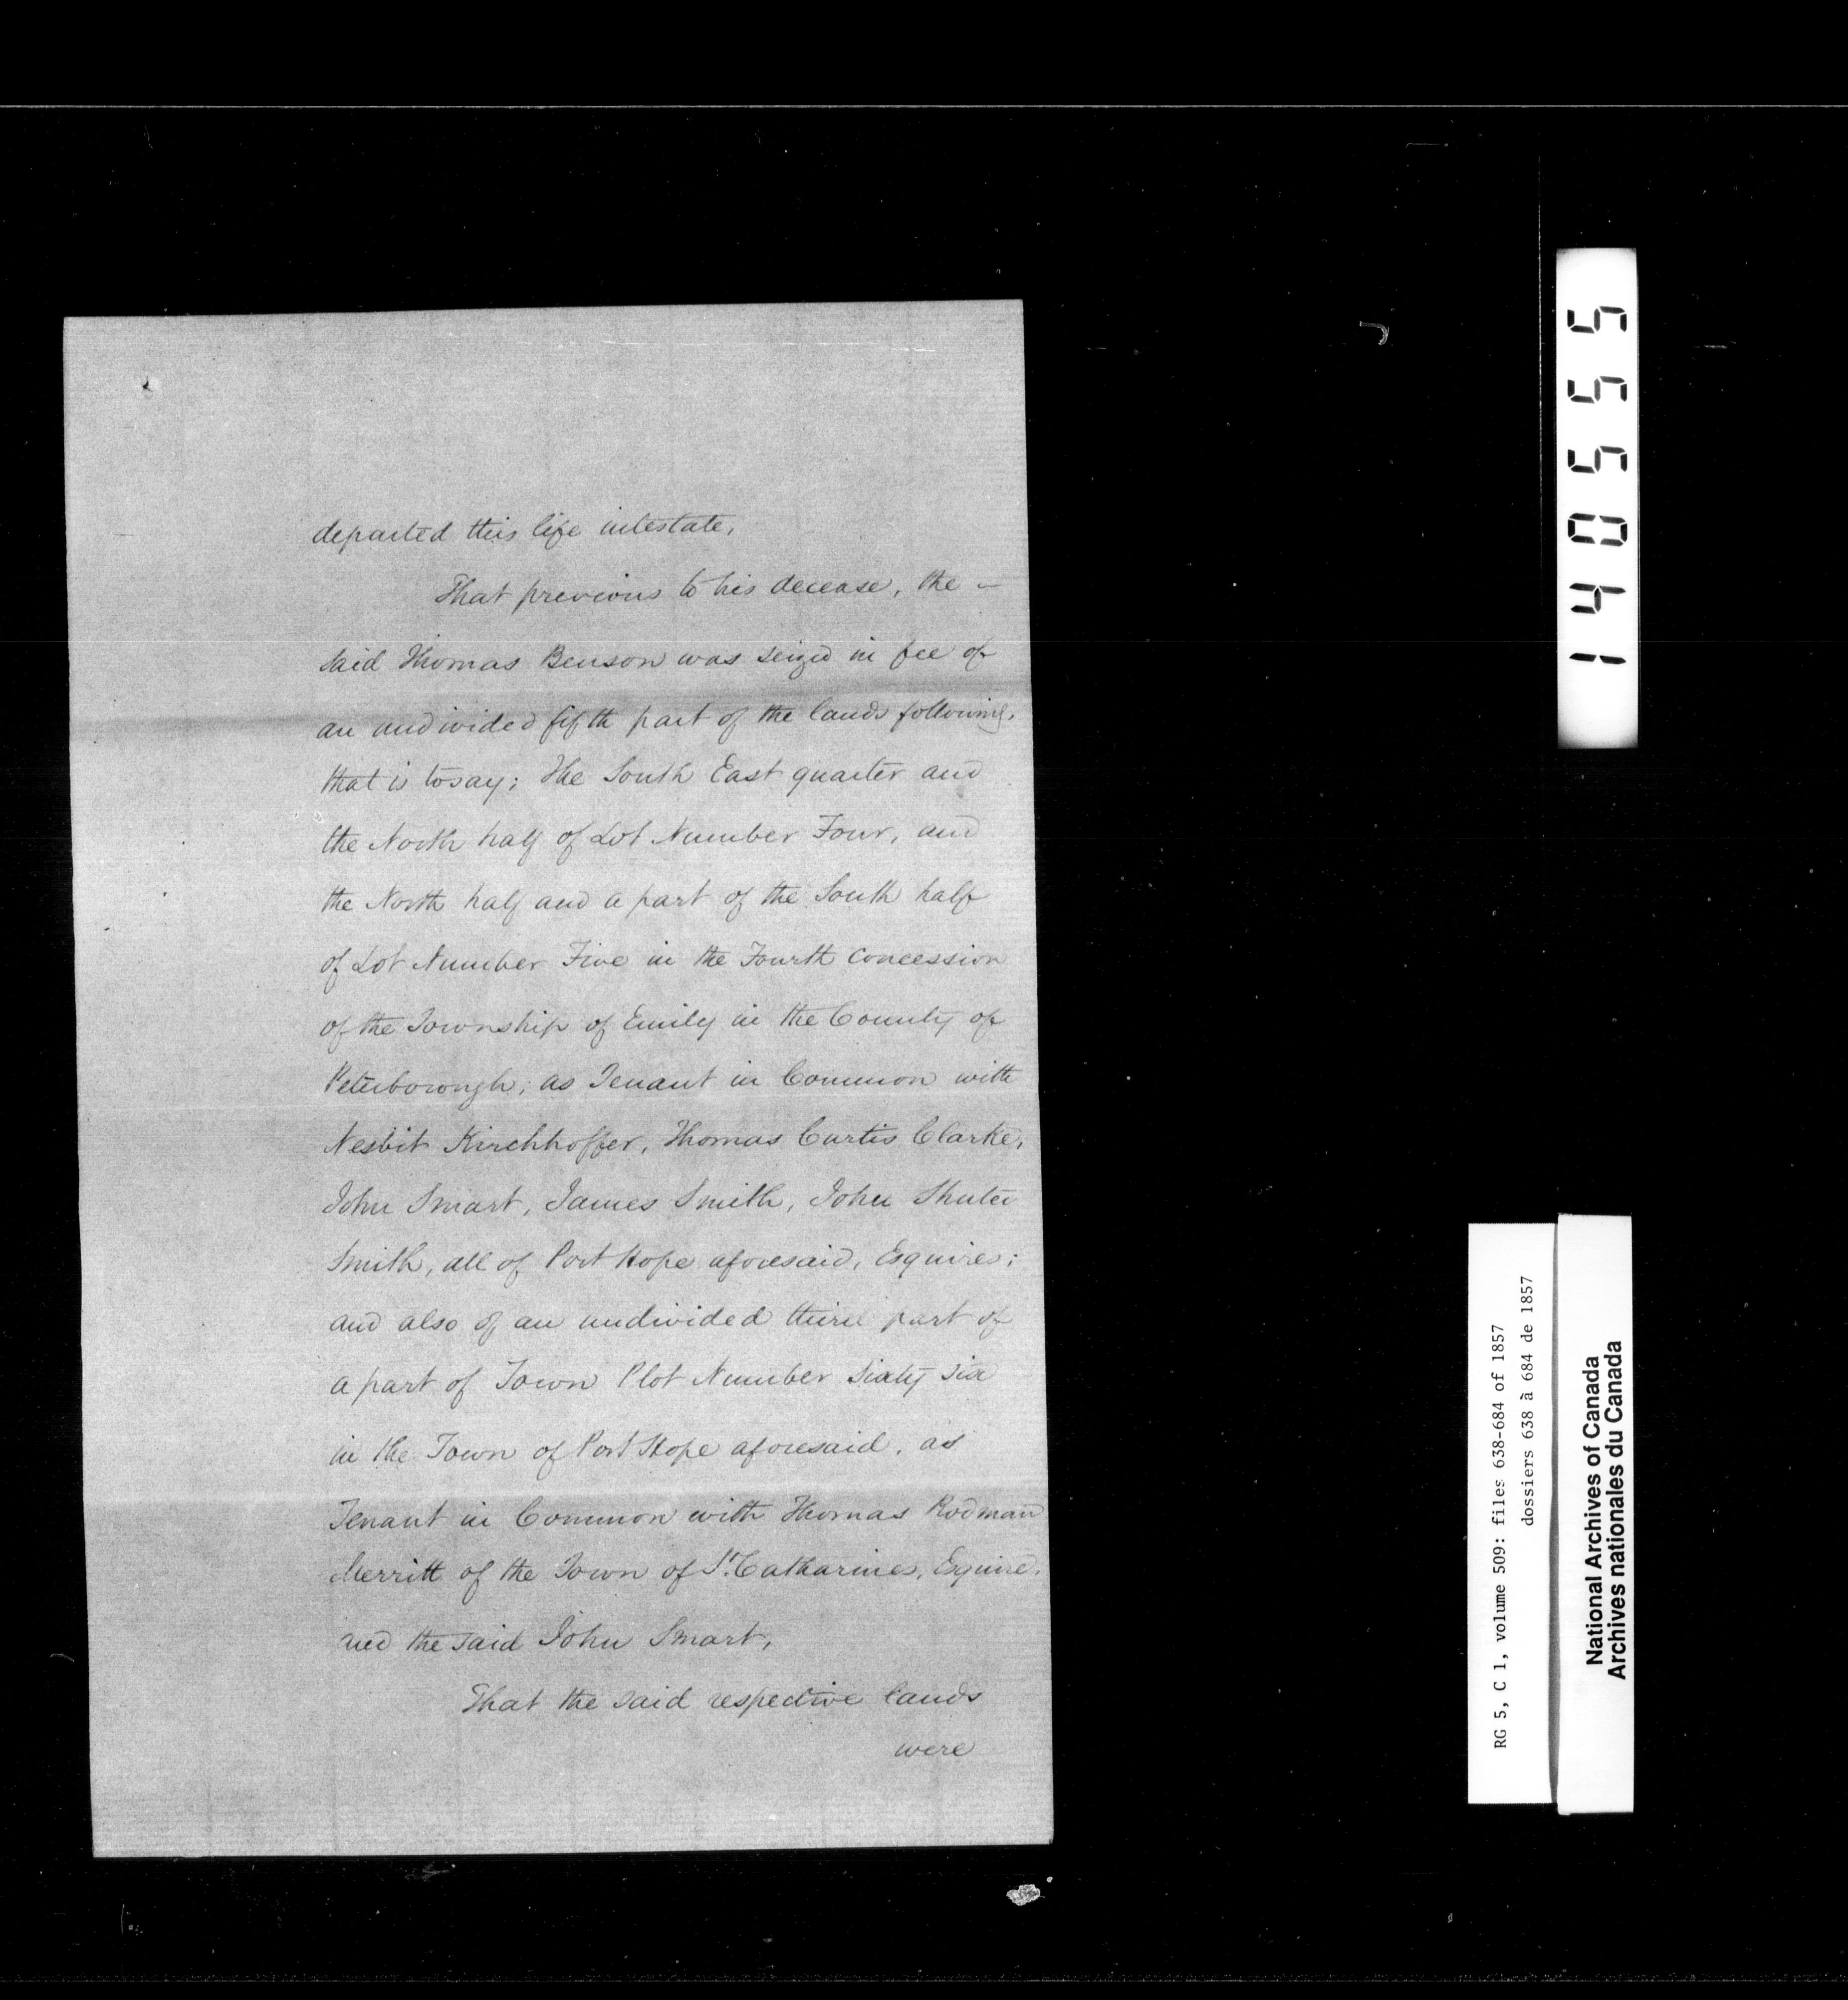 departed this life intestate,
That previous to his decease, the –
said Thomas Benson was seized in fee of
an undivided fifth part of the lands following,
that is to say; The South East quarter and
the North half of Lot Number Four, and
the North half and a part of the South half
of Lot Number Five in the Fourth Concession
of the Township of Emily in the County of
Peterborough; as Tenant in Common with
Nesbit Kirchhoffer, Thomas Curtis Clarke,
John Smart, James Smith, John Shuter
Smith, all of Port Hope aforesaid, Esquires;
and also of an undivided third part of
a part of Town Plot Number Sixty Six
in the Town of Port Hope aforesaid, as
Tenant in Common with Thomas Rodman
Merritt of the Town of St. Catharines, Esquire,
and the said John Smart,
That the said respective lands
were
140555
RG 5, C 1, volume 509: files 638-684 of 1857
dossiers 638 à 684 de 1857
National Archives of Canada
Archives nationales du Canada